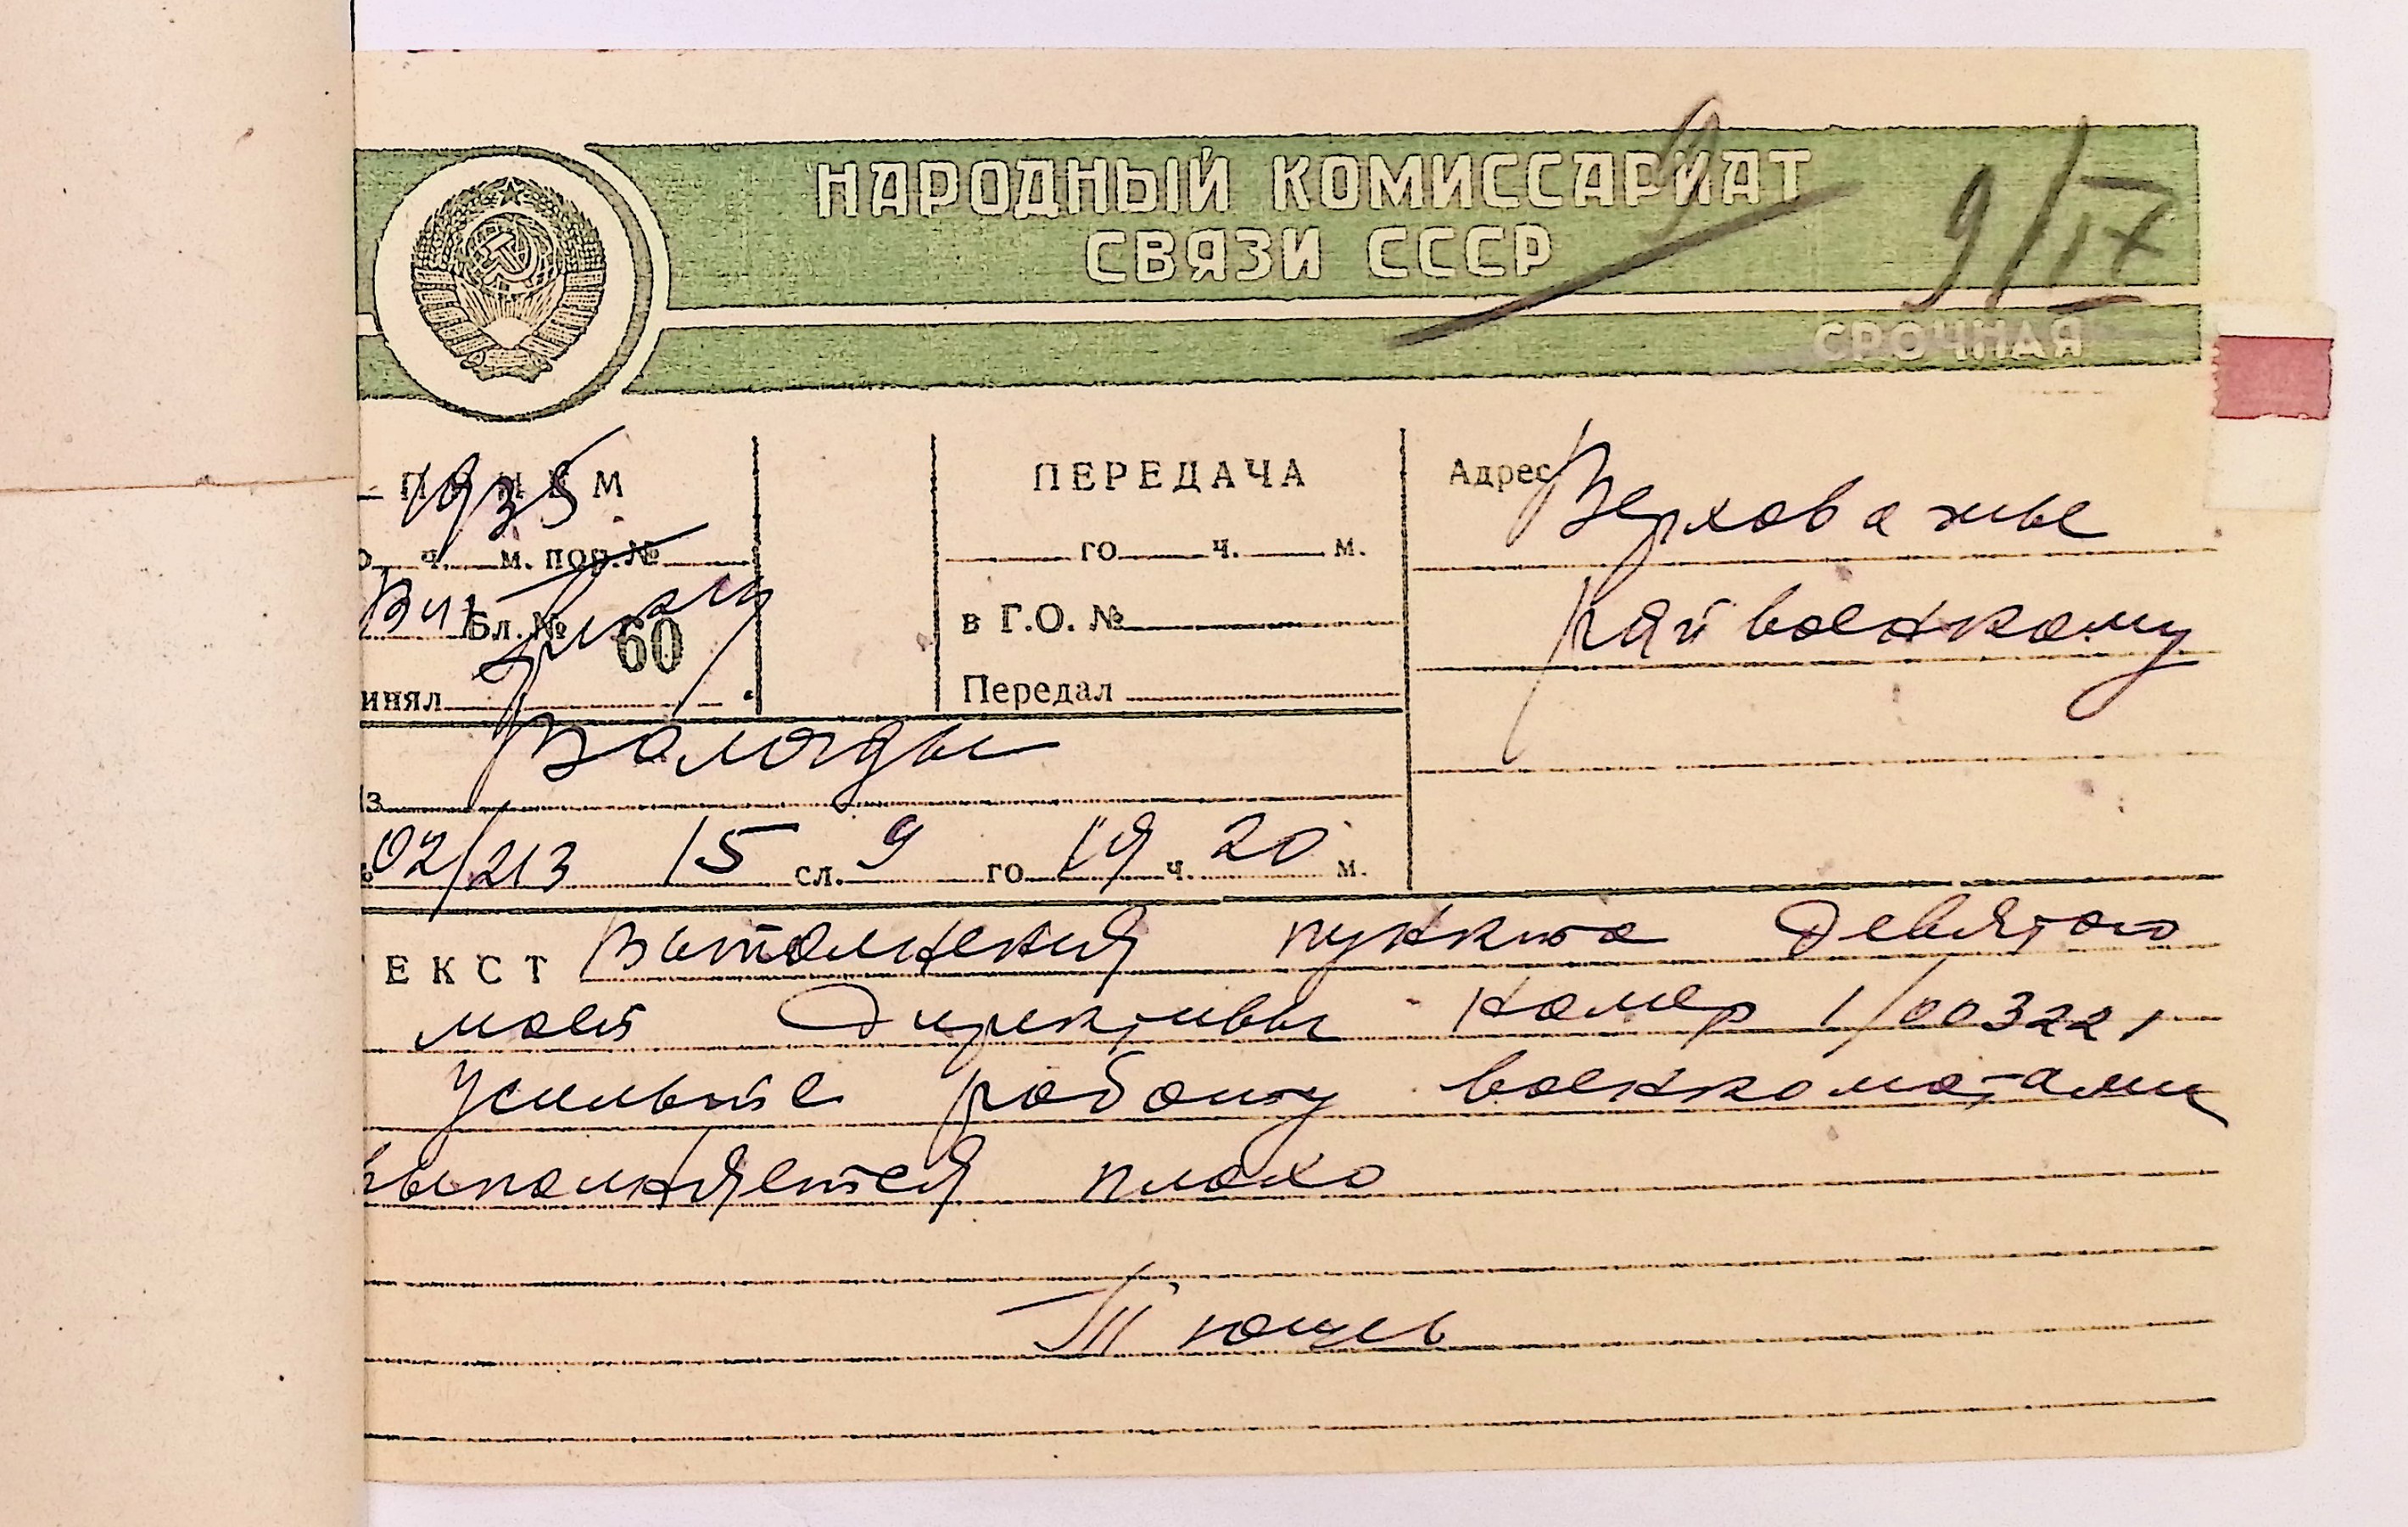 НАРОДНЫЙ КОМИССАРИАТ
СВЯЗИ СССР
9
9/IX
СРОЧНАЯ
ПРИЕМ
1935
ч. м. пор. №
Бл. № 60
инял
ПЕРЕДАЧА
го ч. м.
в Г.О. №
Передал
Адрес Верховажье
Райвоенкому
из Вологды
02/213 15 сл. 9 го 19 ч. 20 м.
ЕКСТ Выполнения пункта Девятого
моей Директивы номер 1/003221
Усильте работу военкоматами
выполняется плохо
Тющев